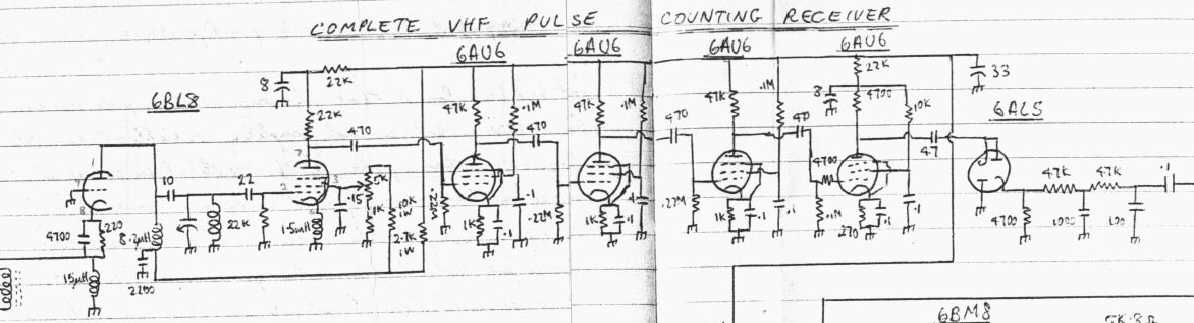 COMPLETE VHF PULSE COUNTING RECEIVER
6AU6
6AU6
6AU6
6AU6
6BL8
6AL5
8
22K
22K
470
47K
.1M
470
47K
.1M
470
47K
.1M
47
8
22K
4700
10K
47
33
1
10
22
22K
7
2
3
5K
1K
10K
1W
.22M
1K
.1
.1
.22M
1K
.1
.22M
1K
.1
.1
4700
.1M
270
.1
.1
4700
47K
47K
.1
1000
100
4700
220
8.2µH
1.5µH
2.7K
1W
15µH
2200
6BM8